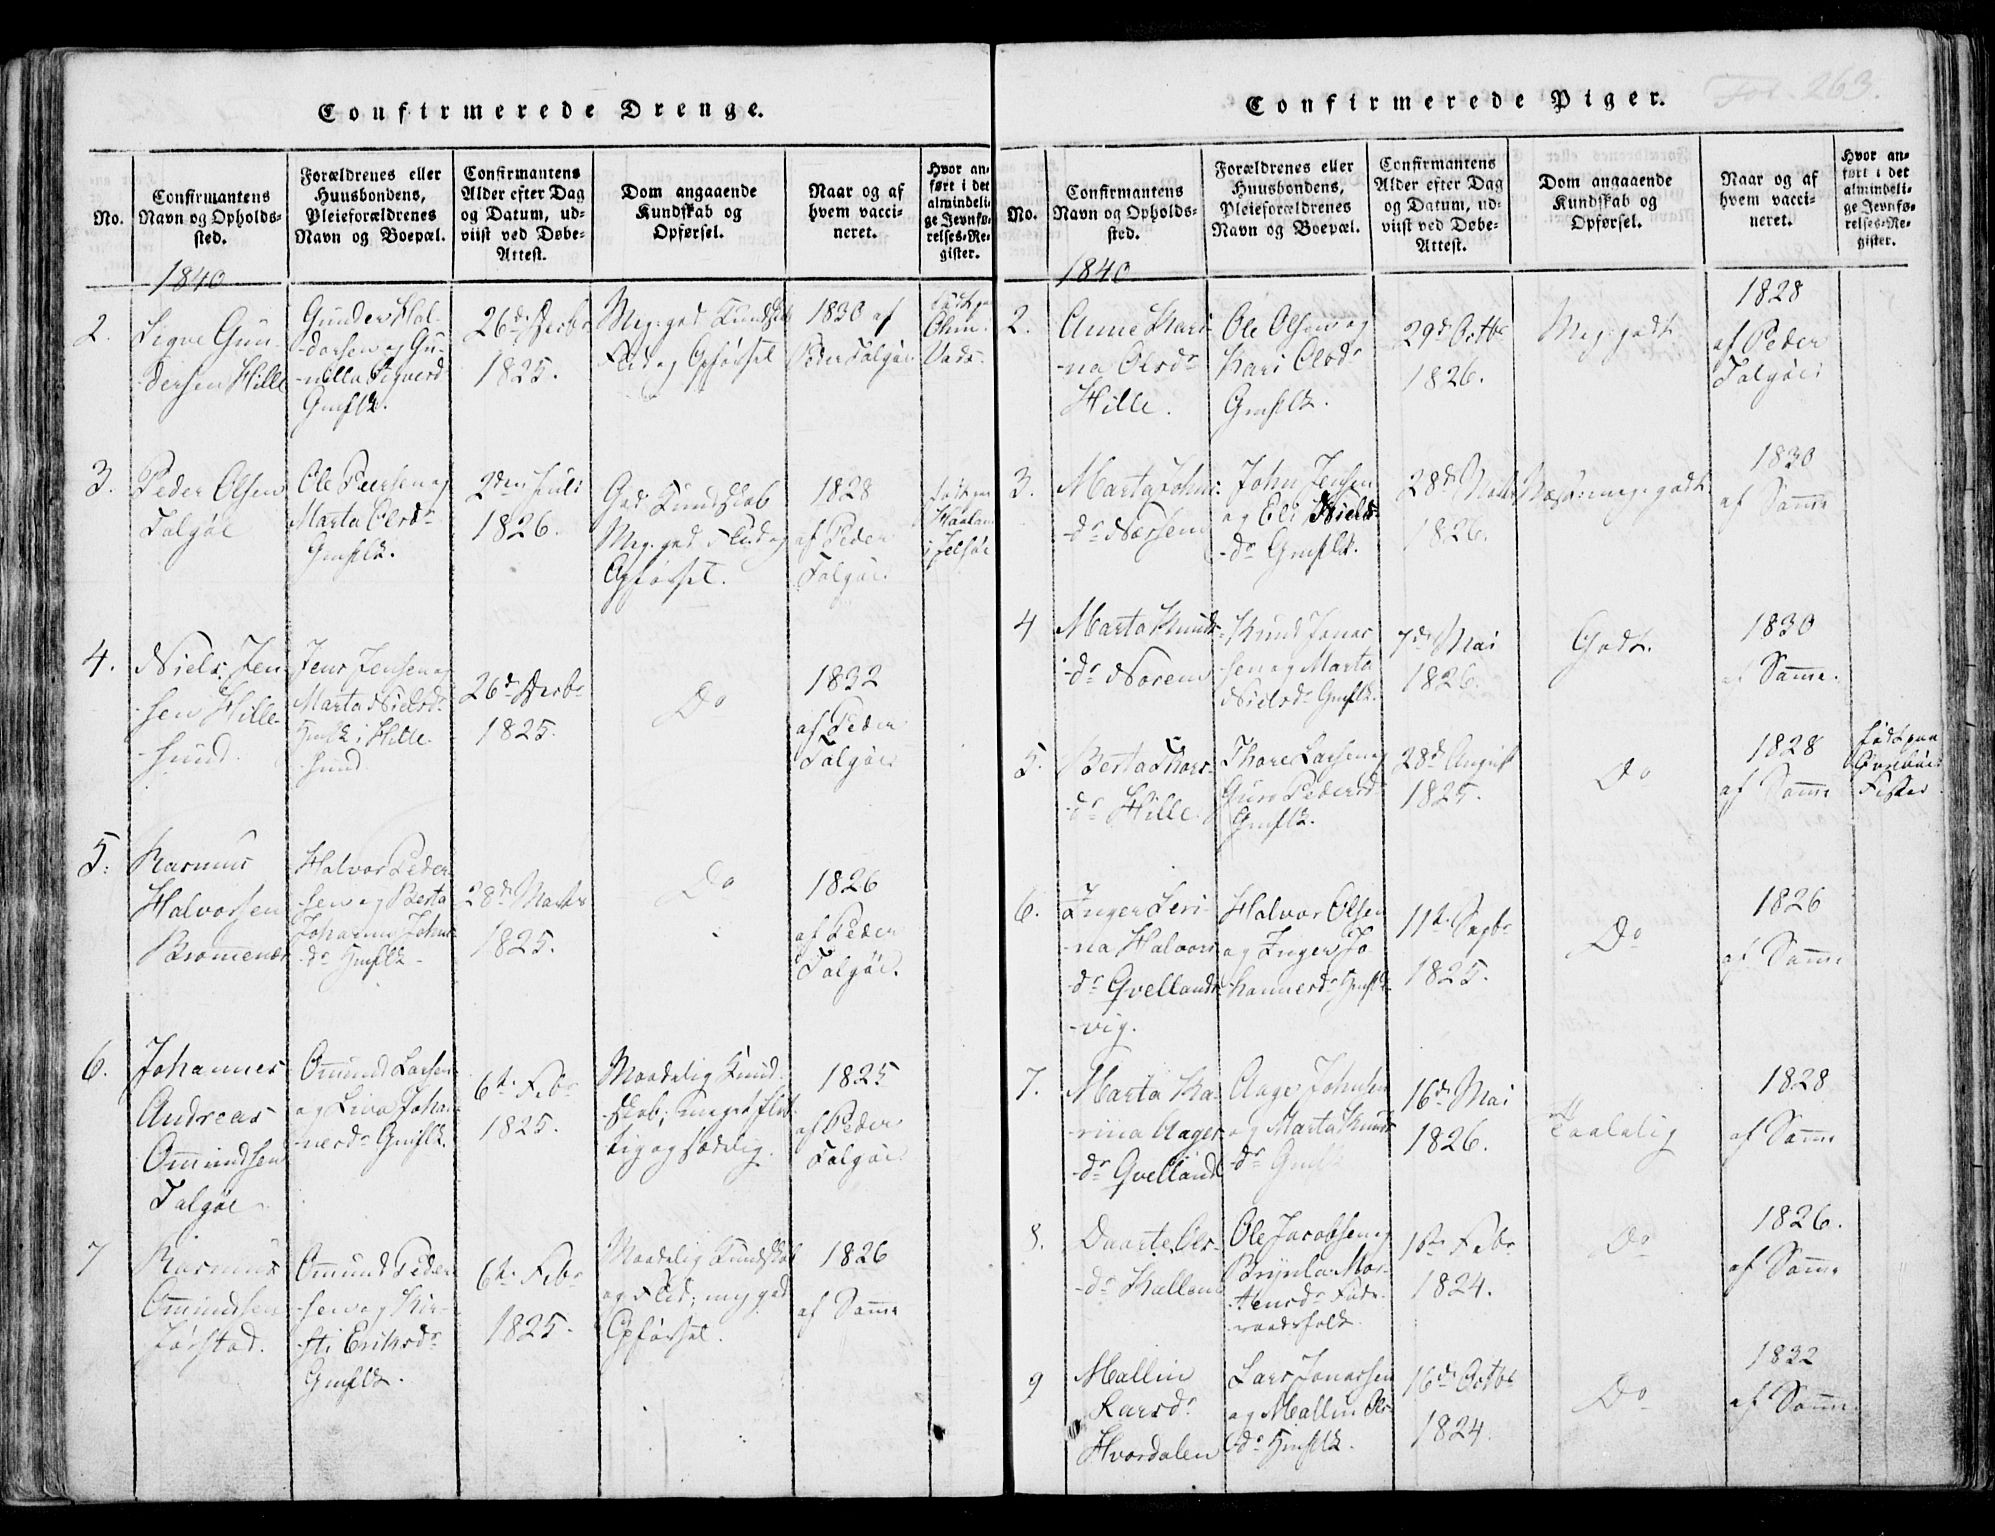 Confirmerede Drenge.
No.
Confirmantens
Navn og Opholds-
sted.
Forældrenes eller
Huusbondens,
Pleieforældrenes
Navn og Boepæl.
Confirmantens
Alder efter Dag
og Datum, ud-
viist ved Døbe-
Attest.
Dom angaaende
Kundskab og
Opførsel.
Naar og af
hvem vacci-
neret.
Hvor an-
ført i det
almindeli-
ge Jevnfø-
relses-Re-
gister.
1840
2.
Sigve Gun-
dersen Hille
Gunder Hal-
-dorsen og Gu-
-nilla Sigversd
Gmflk.
26d Decbr
1825.
Meg. god Kundskab
Flid og Opførsel
1830 af
Peder Talgøe
født paa
3.
Peder Olsen
Talgøe
Ole Peersen og
Marta Olsdr
Gmflk.
2den Juli
1826.
God Kundskab
Meg. god Flid og
Opførsel.
1828
af Peder
Talgøe.
født paa
i Jelsøe
4.
Niels Jen-
-sen Hille-
-sund.
Jens Jensen og
Marta Nielsdr
Hmflk i Hille-
-sund
26d Decbr
1825.
Do
1832
af Peder
Talgøe
5.
Rasmus
Halvorsen
Bromenæs
Halvor Peder-
-sen og Berta
Johanna Johns-
-dr Hmflk
28d Marts
1825.
Do
1826
af Peder
Talgøe.
6.
Johannes
Andreas
Omundsen
Talgøe
Omund Larsen
og Liva Johan-
-nesdr Gmflk.
6te Febr
1825.
Maadelig Kund-
skab; meget flit-
tig og sædelig.
1825
af Peder
Talgøe
7
Rasmus
Omundsen
Jørstad.
Omund Peder-
-sen og Kir-
-sti Eriksdr
Gmflk.
6te Febr
1825.
Maadelig Kundskab
og Flid; meg god
Opførsel.
1826
af Samme
Confirmerede Piger.
Fol. 263.
No.
Confirmantens
Navn og Opholds-
sted.
Forældrenes eller
Huusbondens,
Pleieforældrenes
Navn og Boepæl.
Confirmantens
Alder efter Dag
og Datum, ud-
viist ved Døbe-
Attest.
Dom angaaende
Kundskab og
Opførsel.
Naar og af
hvem vacci-
neret.
Hvor an-
ført i det
almindeli-
ge Jevnfø-
relses-Re-
gister.
1840
2.
Anne Kari-
-na Olsdr
Hille.
Ole Olsen og
Kari Olsdr
Gmflk.
29d Octbr
1826.
Meg. godt.
1828
af Peder
Talgøe
3.
Marta Johns-
-dr Norsem
John Jensen
og Eli Niels-
-dr Gmflk.
28d Novbr
1826.
Næsten meg. godt
1830
af Samme
4
Marta Knuds-
-dr Norem
Knud Jonas-
sen og Marta
Nielsdr Gmflk.
7de Mai
1826.
Godt.
1830
af Samme.
5.
Berta Thors-
-dr Hille
Thore Larsen og
Guro Pedersdr
Gmflk.
28d August
1825.
Do
1828
af Samme
født paa
Fister
6.
Inger Seri-
-na Halvors-
-dr Qvellands-
-vig.
Halvor Olsen
og Inger Jo-
hannesdr Hmflk
11te Septbr
1825.
Do
1826
af Samme
7.
Marta Ka-
rina Aages-
-dr Qvelland
Aage Johnsen
og Marta Knuds-
-dr Gmflk
16de Mai
1826.
Taalelig
1828
af Samme
8.
Daarte Ols-
-dr Hallem
Ole Jacobsen og
Brynla Mor-
-tensdr Føde-
raadsfolk.
16de Febr
1824.
Do
1826.
af Samme
9
Mallin
Larsdr
Hvordalen
Lars Jonassen
og Mallin Ols-
-dr Hmflk.
16de Octbr
1824.
Do
1832
af Samme.